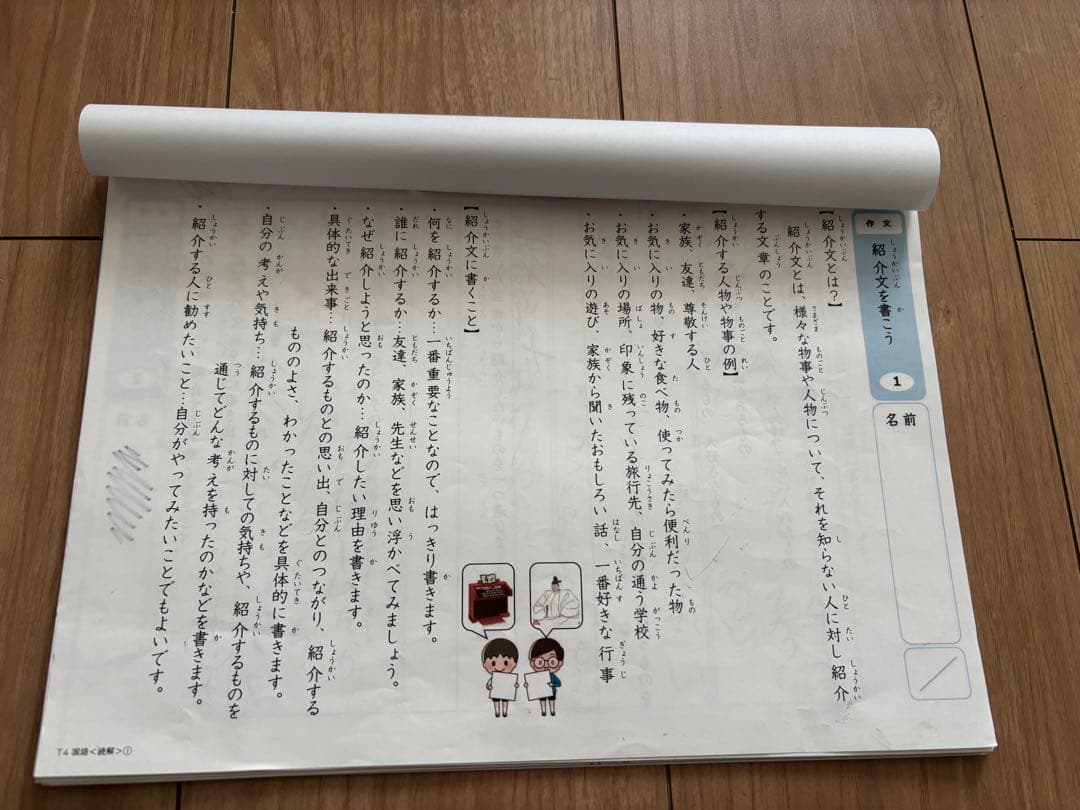 作文
紹介文を書こう
1
名前
【紹介文とは？】
紹介文とは、様々な物事や人物について、それを知らない人に対し紹介
する文章のことです。
【紹介する人物や物事の例】
・家族、友達、尊敬する人
・お気に入りの物、好きな食べ物、使ってみたら便利だった物
・お気に入りの場所、印象に残っている旅行先、自分の通う学校
・お気に入りの遊び、家族から聞いたおもしろい話、一番好きな行事
【紹介文に書くこと】
・何を紹介するか…一番重要なことなので、はっきり書きます。
・誰に紹介するか…友達、家族、先生などを思い浮かべてみましょう。
・なぜ紹介しようと思ったのか…紹介したい理由を書きます。
・具体的な出来事…紹介するものとの思い出、自分とのつながり、紹介する
もののよさ、わかったことなどを具体的に書きます。
・自分の考えや気持ち…紹介するものに対しての気持ちや、紹介するものを
通じてどんな考えを持ったのかなどを書きます。
・紹介する人に勧めたいこと…自分がやってみたいことでもよいです。
T4 国語＜読解＞①